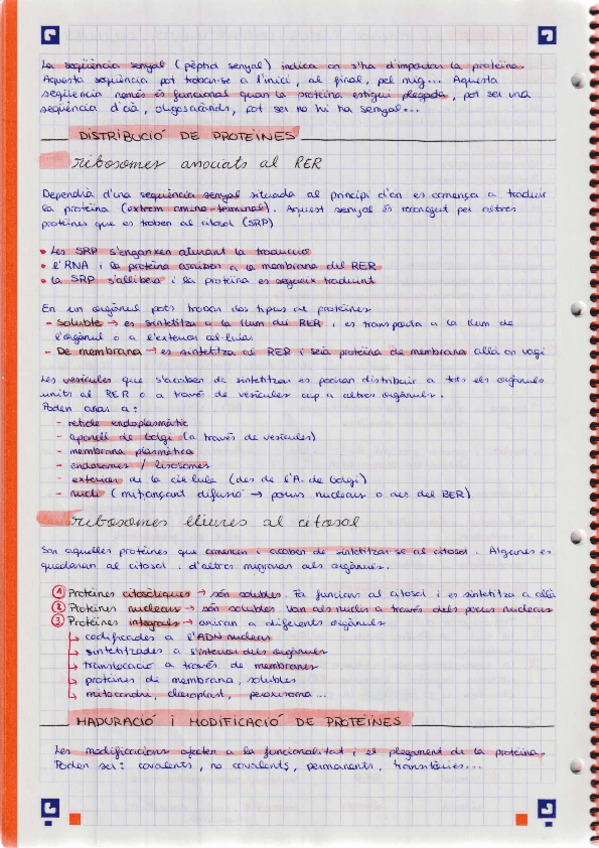 La seqüència senyal (pèptid senyal) indica on s'ha d'importar la proteïna.
Aquesta seqüència pot trobar-se a l'inici, al final, pel mig... Aquesta
seqüència només és funcional quan la proteïna estigui plegada, pot ser una
seqüència d'aà, oligosacàrids, pot ser no hi ha senyal...
DISTRIBUCIÓ DE PROTEÏNES
ribosomes associats al RER
Dependrà d'una seqüència senyal situada al principi d'on es comença a traduir
la proteïna (extrem amino-terminal). Aquest senyal és reconegut per altres
proteïnes que es troben al citosol (SRP)
• Les SRP s'enganxen aturant la traducció
• l'RNA i la proteïna arriben a la membrana del RER
• la SRP s'allibera i la proteïna es segueix traduint
En un orgànul pots trobar dos tipus de proteïnes
- Soluble → es sintetitza a la llum del RER i es transporta a la llum de
l'orgànul o a l'exterior cel·lular
- De membrana → es sintetitza al RER i serà proteïna de membrana allà on vagi
Les vesícules que s'acaben de sintetitzar es poden distribuir a tots els orgànuls
units al RER o a través de vesícules cap a altres orgànuls.
Poden anar a:
- reticle endoplasmàtic
- aparell de Golgi (a través de vesícules)
- membrana plasmàtica
- endosomes / lisosomes
- exterior de la cèl·lula (des de l'A. de Golgi)
- nucli (mitjançant difusió → porus nuclears o des del RER)
ribosomes lliures al citosol
Són aquelles proteïnes que comencen i acaben de sintetitzar-se al citosol. Algunes es
quedaran al citosol i d'altres migraran als orgànuls.
1 Proteïnes citosòliques → són solubles. Fa funcions al citosol i es sintetitza a allà
2 Proteïnes nuclears → són solubles Van als nuclis a través dels porus nuclears
3 Proteïnes integrals → aniran a diferents orgànuls
↳ codificades a l'ADN nuclear
↳ sintetitzades a l'interior dels orgànuls
↳ translocació a través de membranes
↳ proteïnes de membrana, solubles
↳ mitocondri, cloroplast, peroxisoma...
MADURACIÓ I MODIFICACIÓ DE PROTEÏNES
Les modificacions afecten a la funcionalitat i el plegament de la proteïna.
Poden ser: covalents, no covalents, permanents, transitòries...